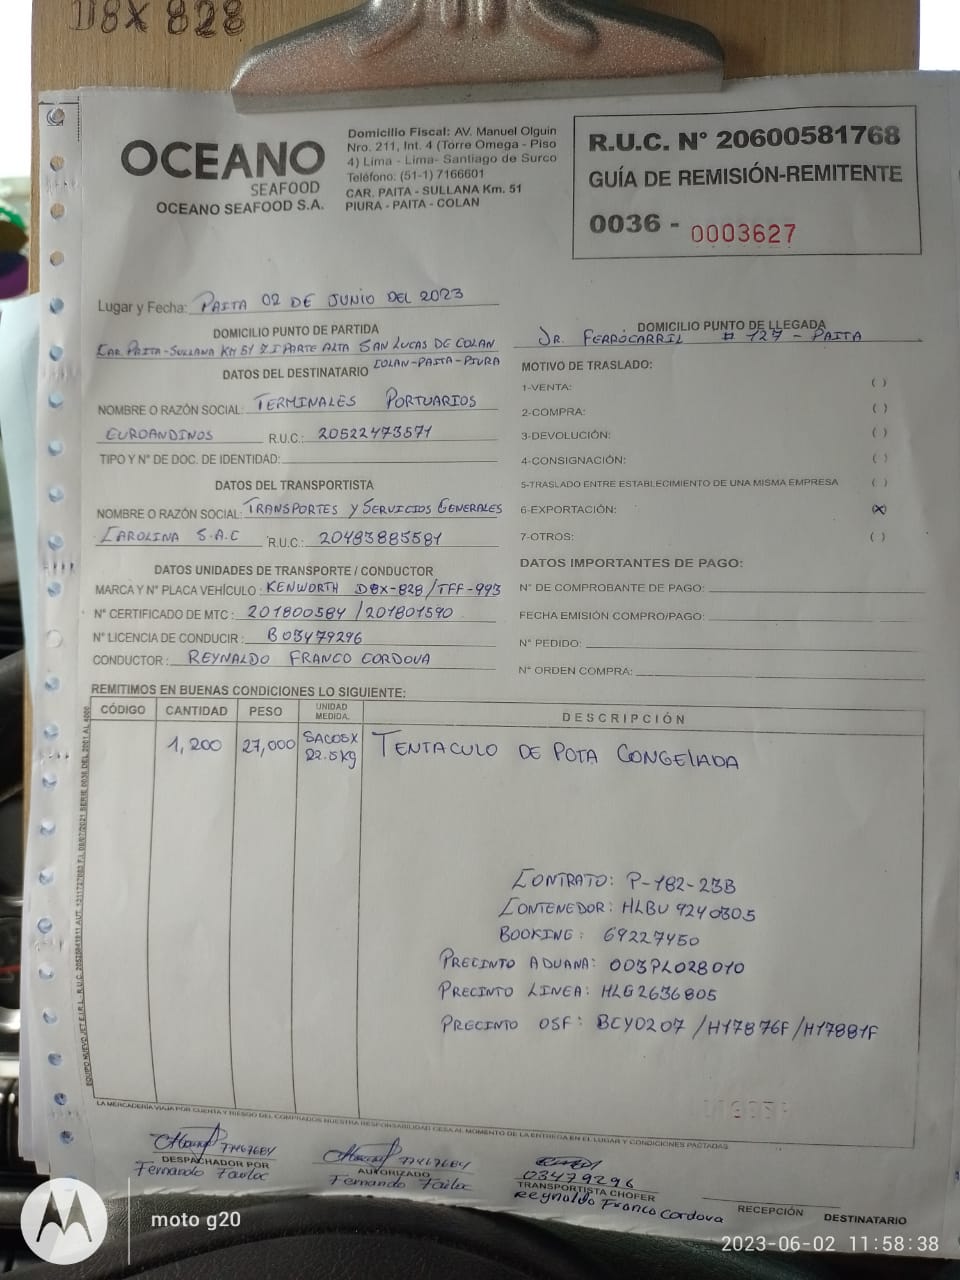 D8X 828
OCEANO
SEAFOOD
OCEANO SEAFOOD S.A.
Domicilio Fiscal: AV. Manuel Olguin
Nro. 211, Int. 4 (Torre Omega - Piso
4) Lima - Lima- Santiago de Surco
Teléfono: (51-1) 7166601
CAR. PAITA - SULLANA Km. 51
PIURA - PAITA - COLAN
R.U.C. N° 20600581768
GUÍA DE REMISIÓN-REMITENTE
0036 - 0003627
Lugar y Fecha: PAITA 02 DE JUNIO DEL 2023
DOMICILIO PUNTO DE PARTIDA
CAR. PAITA-SULLANA KM 51 Z.I PARTE ALTA SAN LUCAS DE COLAN
COLAN-PAITA-PIURA
DOMICILIO PUNTO DE LLEGADA
JR. FERROCARRIL # 127 - PAITA
DATOS DEL DESTINATARIO
NOMBRE O RAZÓN SOCIAL: TERMINALES PORTUARIOS
EUROANDINOS R.U.C.: 20522473571
TIPO Y N° DE DOC. DE IDENTIDAD:
DATOS DEL TRANSPORTISTA
NOMBRE O RAZÓN SOCIAL: TRANSPORTES Y SERVICIOS GENERALES
CAROLINA S.A.C R.U.C.: 20483885581
DATOS UNIDADES DE TRANSPORTE / CONDUCTOR
MARCA Y N° PLACA VEHÍCULO: KENWORTH D8X-828/TFF-993
N° CERTIFICADO DE MTC: 201800584 /201801590
N° LICENCIA DE CONDUCIR: B03479296
CONDUCTOR: REYNALDO FRANCO CORDOVA
MOTIVO DE TRASLADO:
1-VENTA: ( )
2-COMPRA: ( )
3-DEVOLUCIÓN: ( )
4-CONSIGNACIÓN: ( )
5-TRASLADO ENTRE ESTABLECIMIENTO DE UNA MISMA EMPRESA ( )
6-EXPORTACIÓN: (X)
7-OTROS: ( )
DATOS IMPORTANTES DE PAGO:
N° DE COMPROBANTE DE PAGO:
FECHA EMISIÓN COMPRO/PAGO:
N° PEDIDO:
N° ORDEN COMPRA:
REMITIMOS EN BUENAS CONDICIONES LO SIGUIENTE:
CÓDIGO CANTIDAD PESO UNIDAD MEDIDA. DESCRIPCIÓN
1,200 27,000 SACOSX 22.5Kg TENTACULO DE POTA CONGELADA
CONTRATO: P-182-23B
CONTENEDOR: HLBU 9240305
BOOKING: 69227450
PRECINTO ADUANA: 003PL028010
PRECINTO LINEA: HLG2636805
PRECINTO OSF: BCY0207 /H17876F/H17881F
LA MERCADERÍA VIAJA POR CUENTA Y RIESGO DEL COMPRADOR NUESTRA RESPONSABILIDAD CESA AL MOMENTO DE LA ENTREGA EN EL LUGAR Y CONDICIONES PACTADAS
DESPACHADOR POR
Fernando
AUTORIZADO
Fernando
03479296
TRANSPORTISTA CHOFER
Reynaldo Franco Cordova
RECEPCIÓN DESTINATARIO
moto g20
2023-06-02 11:58:38